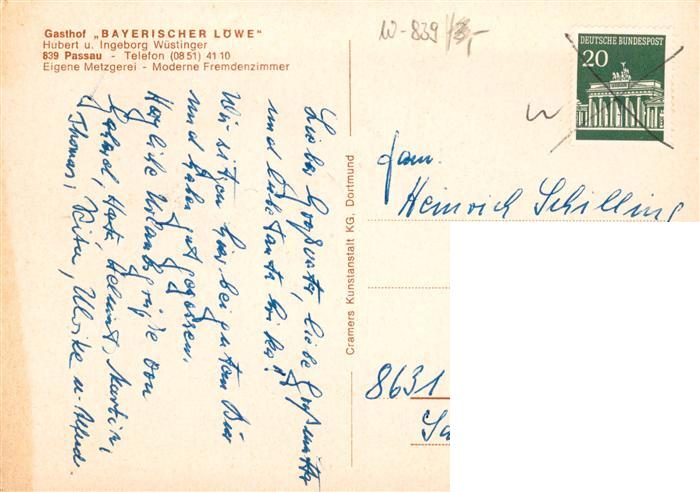 Gasthof „BAYERISCHER LÖWE"
Hubert u. Ingeborg Wüstinger
839 Passau - Telefon (08 51) 41 10
Eigene Metzgerei - Moderne Fremdenzimmer
W-839
DEUTSCHE BUNDESPOST
20
Lieber Großvater, liebe Großmutter
und liebe Tante
Wir sitzen hier bei gutem Bier
und haben gut gegessen.
Herzliche Urlaubsgrüße von
Helmut, Martin,
Thomas, Ulrike u. Alfred.
Cramers Kunstanstalt KG, Dortmund
Fam.
Heinrich Schilling
8631